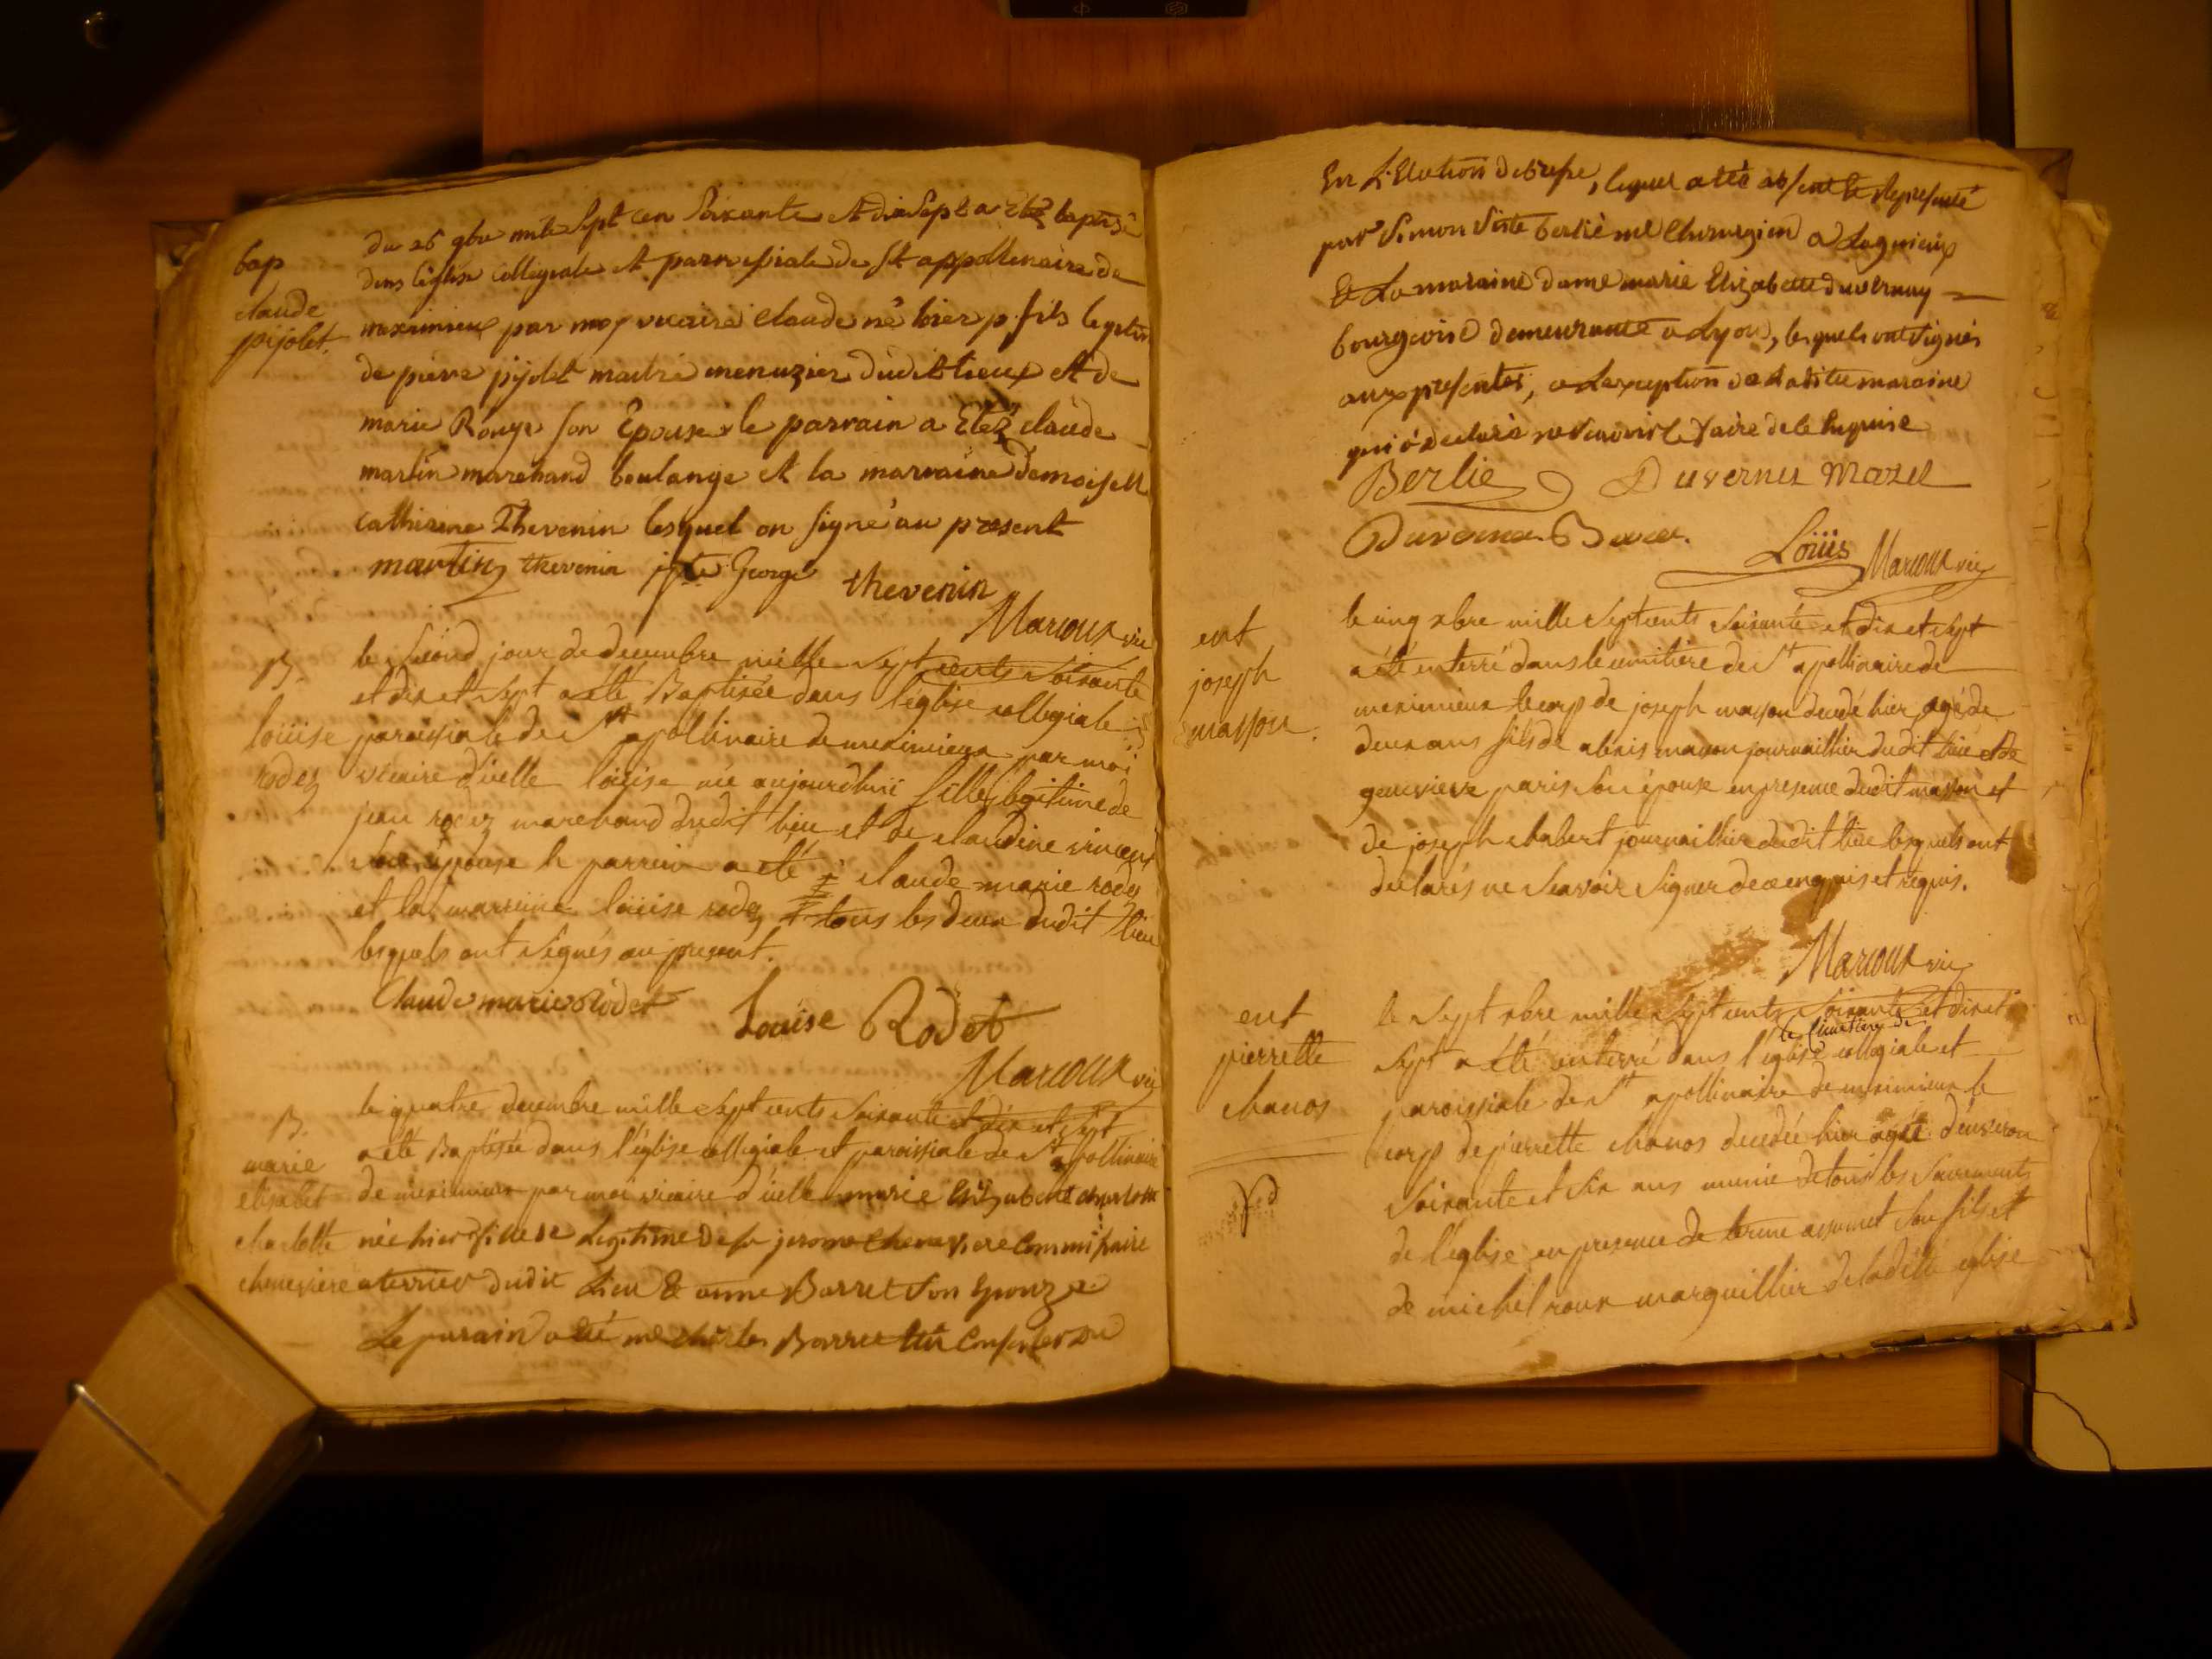 bap
claude
pijolet.
du 26 9bre mile Sept cen Soixante et dix Sept a etez baptisé
dans léglise Collegiale et parroissiale de St appollinaire de
maximieux par moy vicaire claude né hier p. fils legitim
de pierre pijolet maitre menuzier dudit lieux et de
marie Rouge son Epouse le parrain a Etez claude
martin marchand boulange et la marraine demoiselle
catherine Thevenin lesquel on signé au present
martin thevenin George thevenin
Marcoux vic
B.
loüise
rodez
le second jour de decembre mille sept cents soixante
et dix et sept a été Baptisée dans l'église collegiale
paroissiale de St apollinaire de meximieux par moi
vicaire d'icelle loüise née aujourdhui fille legitime de
jean rodez marchand dudit lieu et de claudine vincent
son épouse le parrein a été claude marie rodez
et la marreine loüise rodez tous les deux dudit lieu
lesquels ont signés au present.
Claude marie Rodet Louise Rodet
Marcoux vic
B.
marie
elisabet
charlotte
cheneviere
le quatre decembre mille sept cents soixante et dix et sept
a été Baptisée dans l'église collegiale et paroissiale de St apollinaire
de meximieux par moi vicaire d'icelle marie Elizabeth charlotte
née hier fille Legitime de sr jerome Cheneviere Commissaire
a terrier dudit Lieu & anne Barret son Epouze
Le parain a été me charles Barret Conseiller du
En L'Election de bresse, lequel a été absent & Representé
par Simon Sixte berlié me Chirurgien a Lagnieux
& La maraine dame marie Elizabette duvernay
bourgeoise demeurante a Lyon, lesquels ont signés
aux presentes, a Lexception de Ladite maraine
qui a declaré ne scavoir le faire de ce Enquise
Berlie Duverney Mazel
Loüis Marcoux vic
ent
joseph
masson.
le cinq xbre mille sept cents soixante et dix et sept
a été enterré dans le cimitière de St apollinaire de
meximieux le corp de joseph masson decedé hier agé de
deux ans fils de alexis masson journaillier dudit lieu et de
genevieve paris son épouse en presence dudit masson et
de joseph chabert journaillier dudit lieu lesquels ont
declarés ne scavoir signer de ce enquis et requis.
Marcoux vic
ent
pierrette
chanos
le sept xbre mille sept cents soixante et dix et
le cimetiere de
sept a été enterré dans l'église collegiale et
paroissiale de St apollinaire de meximieux le
corp de pierrette chanos decedée hier agée d'environ
soixante et six ans munie de tous les sacrements
de l'église en presence de son fils et
de michel roux marguillier de ladite eglise